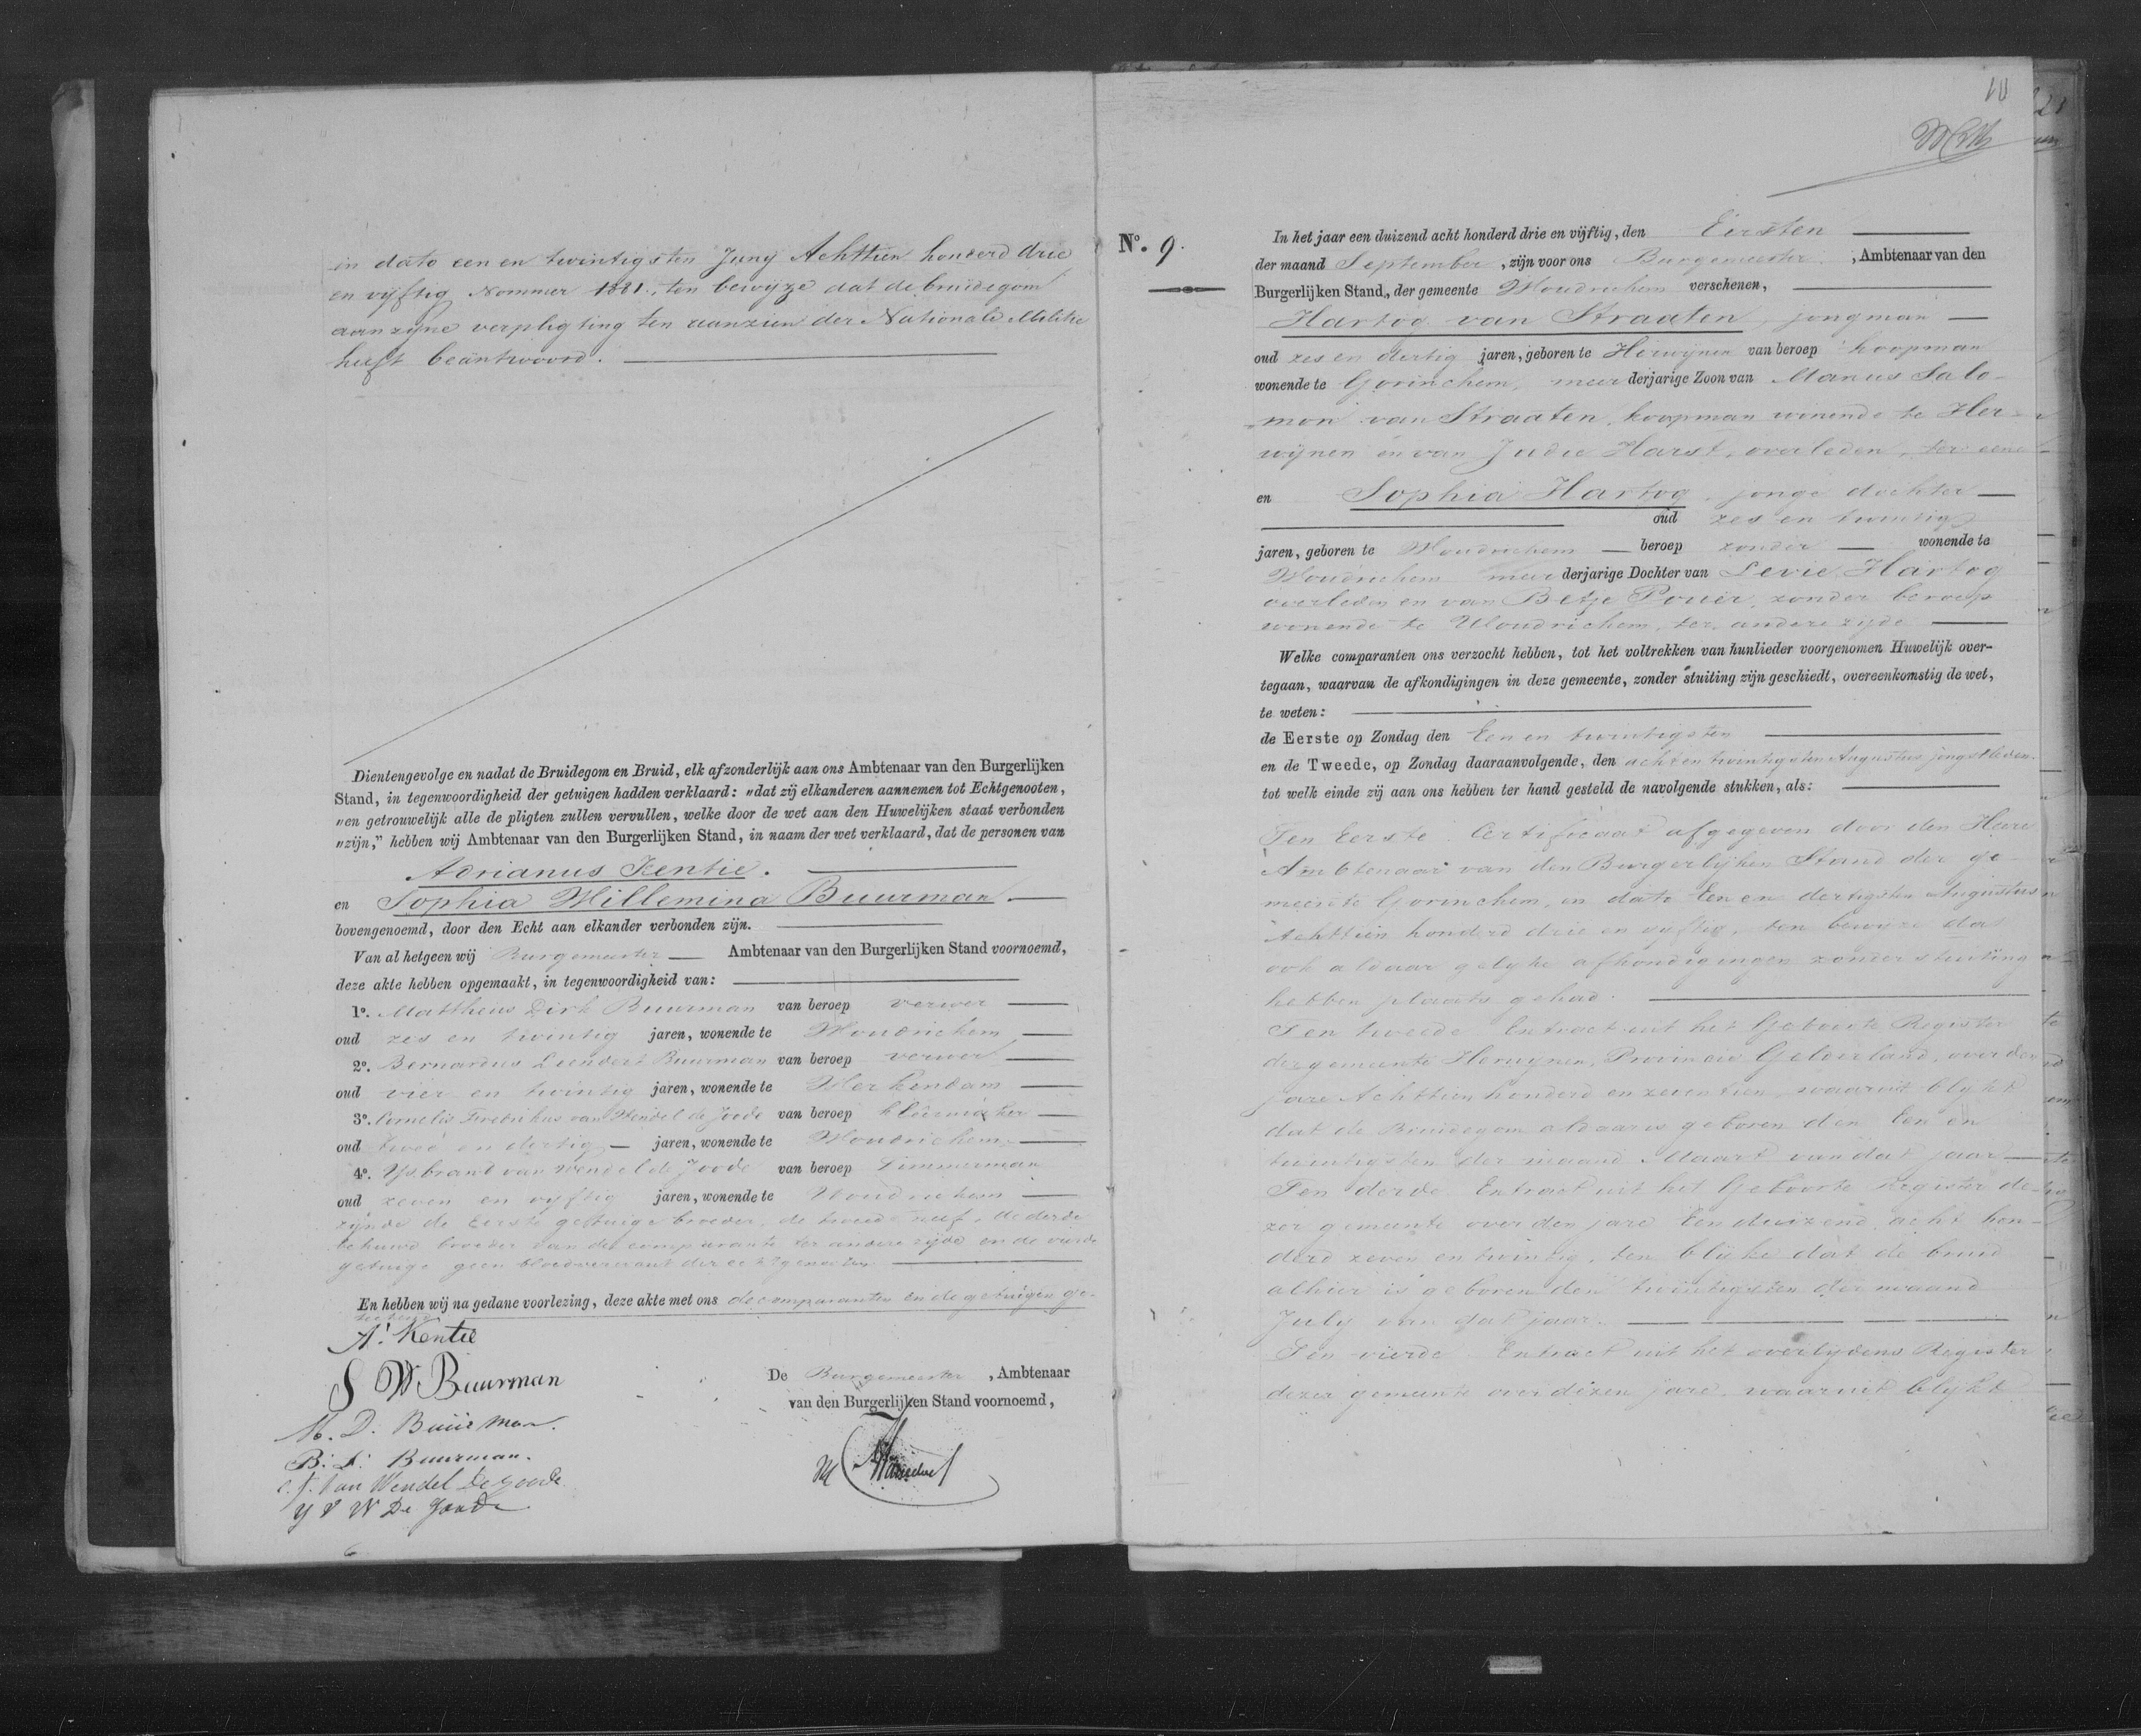 in dato een en twintigsten Juny Achttien honderd drie
en vyftig Nommer 1881, ten bewyze dat de bruidegom
aan zyne verpligting ten aanzien der Nationale Militie
heeft beäntwoord.
Dientengevolge en nadat de Bruidegom en Bruid, elk afzonderlijk aan ons Ambtenaar van den Burgerlijken
Stand, in tegenwoordigheid der getuigen hadden verklaard: "dat zij elkanderen aannemen tot Echtgenooten,
"en getrouwelijk alle de pligten zullen vervullen, welke door de wet aan den Huwelijken staat verbonden
"zijn," hebben wij Ambtenaar van den Burgerlijken Stand, in naam der wet verklaard, dat de personen van
Adrianus Kentie.
en Sophia Willemina Buurman.
bovengenoemd, door den Echt aan elkander verbonden zijn.
Van al hetgeen wij Burgemeester Ambtenaar van den Burgerlijken Stand voornoemd,
deze akte hebben opgemaakt, in tegenwoordigheid van:
1o. Mattheus Dirk Buurman van beroep verwer
oud zes en twintig jaren, wonende te Woudrichem
2o. Bernardus Leendert Buurman van beroep verwer
oud vier en twintig jaren, wonende te Werkendam
3o. Cornelis Fredrikus van Wendel de Joode van beroep kleermaker
oud twee en dertig jaren, wonende te Woudrichem
4o. Ysbrand van Wendel de Joode van beroep Timmerman
oud zeven en vyftig jaren, wonende te Woudrichem
zijnde de Eerste getuige broeder, de tweede neef, de derde
behuwd broeder van de comparante ter andere zijde en de vierde
getuige geen bloedverwant der echtgenooten
En hebben wij na gedane voorlezing, deze akte met ons de comparanten en de getuigen ge-
teekend
A. Kentie
S W Buurman
M. D. Buurman.
B. L. Buurman.
C. F. Van Wendel De Joode
Y V W De Joode
De Burgemeester, Ambtenaar
van den Burgerlijken Stand voornoemd,
6
10
No. 9.
In het jaar een duizend acht honderd drie en vijftig, den Eersten
der maand September, zijn voor ons Burgemeester, Ambtenaar van den
Burgerlijken Stand, der gemeente Woudrichem verschenen,
Hartog van Straaten, jongman
oud zes en dertig jaren, geboren te Herwijnen van beroep koopman
wonende te Gorinchem, meerderjarige Zoon van Manus Salo-
mon van Straaten, koopman wonende te Her-
wijnen en van Judie Harst, overleden, ter eene
en Sophia Hartog, jonge dochter
oud zes en twintig
jaren, geboren te Woudrichem beroep zonder wonende te
Woudrichem meerderjarige Dochter van Levie Hartog
overleden en van Betje Pouer, zonder beroep
wonende te Woudrichem, ter andere zyde
Welke comparanten ons verzocht hebben, tot het voltrekken van hunlieder voorgenomen Huwelijk over-
tegaan, waarvan de afkondigingen in deze gemeente, zonder stuiting zijn geschiedt, overeenkomstig de wet,
te weten:
de Eerste op Zondag den Een en twintigsten
en de Tweede, op Zondag daaraanvolgende, den acht en twintigsten Augustus jongstleden.
tot welk einde zij aan ons hebben ter hand gesteld de navolgende stukken, als:
Ten Eerste Certificaat afgegeven door den Heere
Ambtenaar van den Burgerlyken Stand der ge-
meente Gorinchem, in dato Een en dertigsten Augustus
Achttien honderd drie en vyftig, ten bewyze dat
ook aldaar gelyke afkondigingen zonder stuiting
hebben plaats gehad.
Ten tweede Extract uit het Geboorte Register
der gemeente Herwynen, Provincie Gelderland, over den
jare Achttien honderd en zeventien, waaruit blykt
dat de Bruidegom aldaar is geboren den Een en
twintigsten der maand Maart van dat jaar
Ten derde Extract uit het Geboorte Register de-
zer gemeente over den jare Een duizend acht hon-
derd zeven en twintig, ten blijke dat de bruid
alhier is geboren den twintigsten der maand
July van dat jaar.
Ten vierde Extract uit het overlijdens Register
dezer gemeente over dezen jare, waaruit blykt